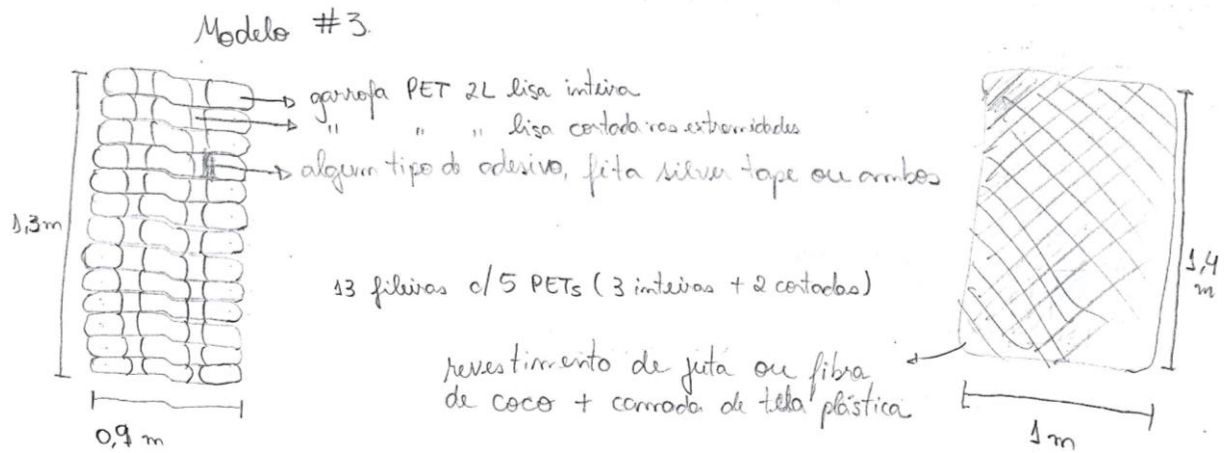 Modelo #3.
garrafa PET 2L lisa inteira
" " " lisa cortada nas extremidades
algum tipo de adesivo, fita silver tape ou ambos
1,3m
13 fileiras c/ 5 PETs (3 inteiras + 2 cortadas)
1,4
m
revestimento de juta ou fibra
de coco + camada de tela plástica
0,9 m
1 m